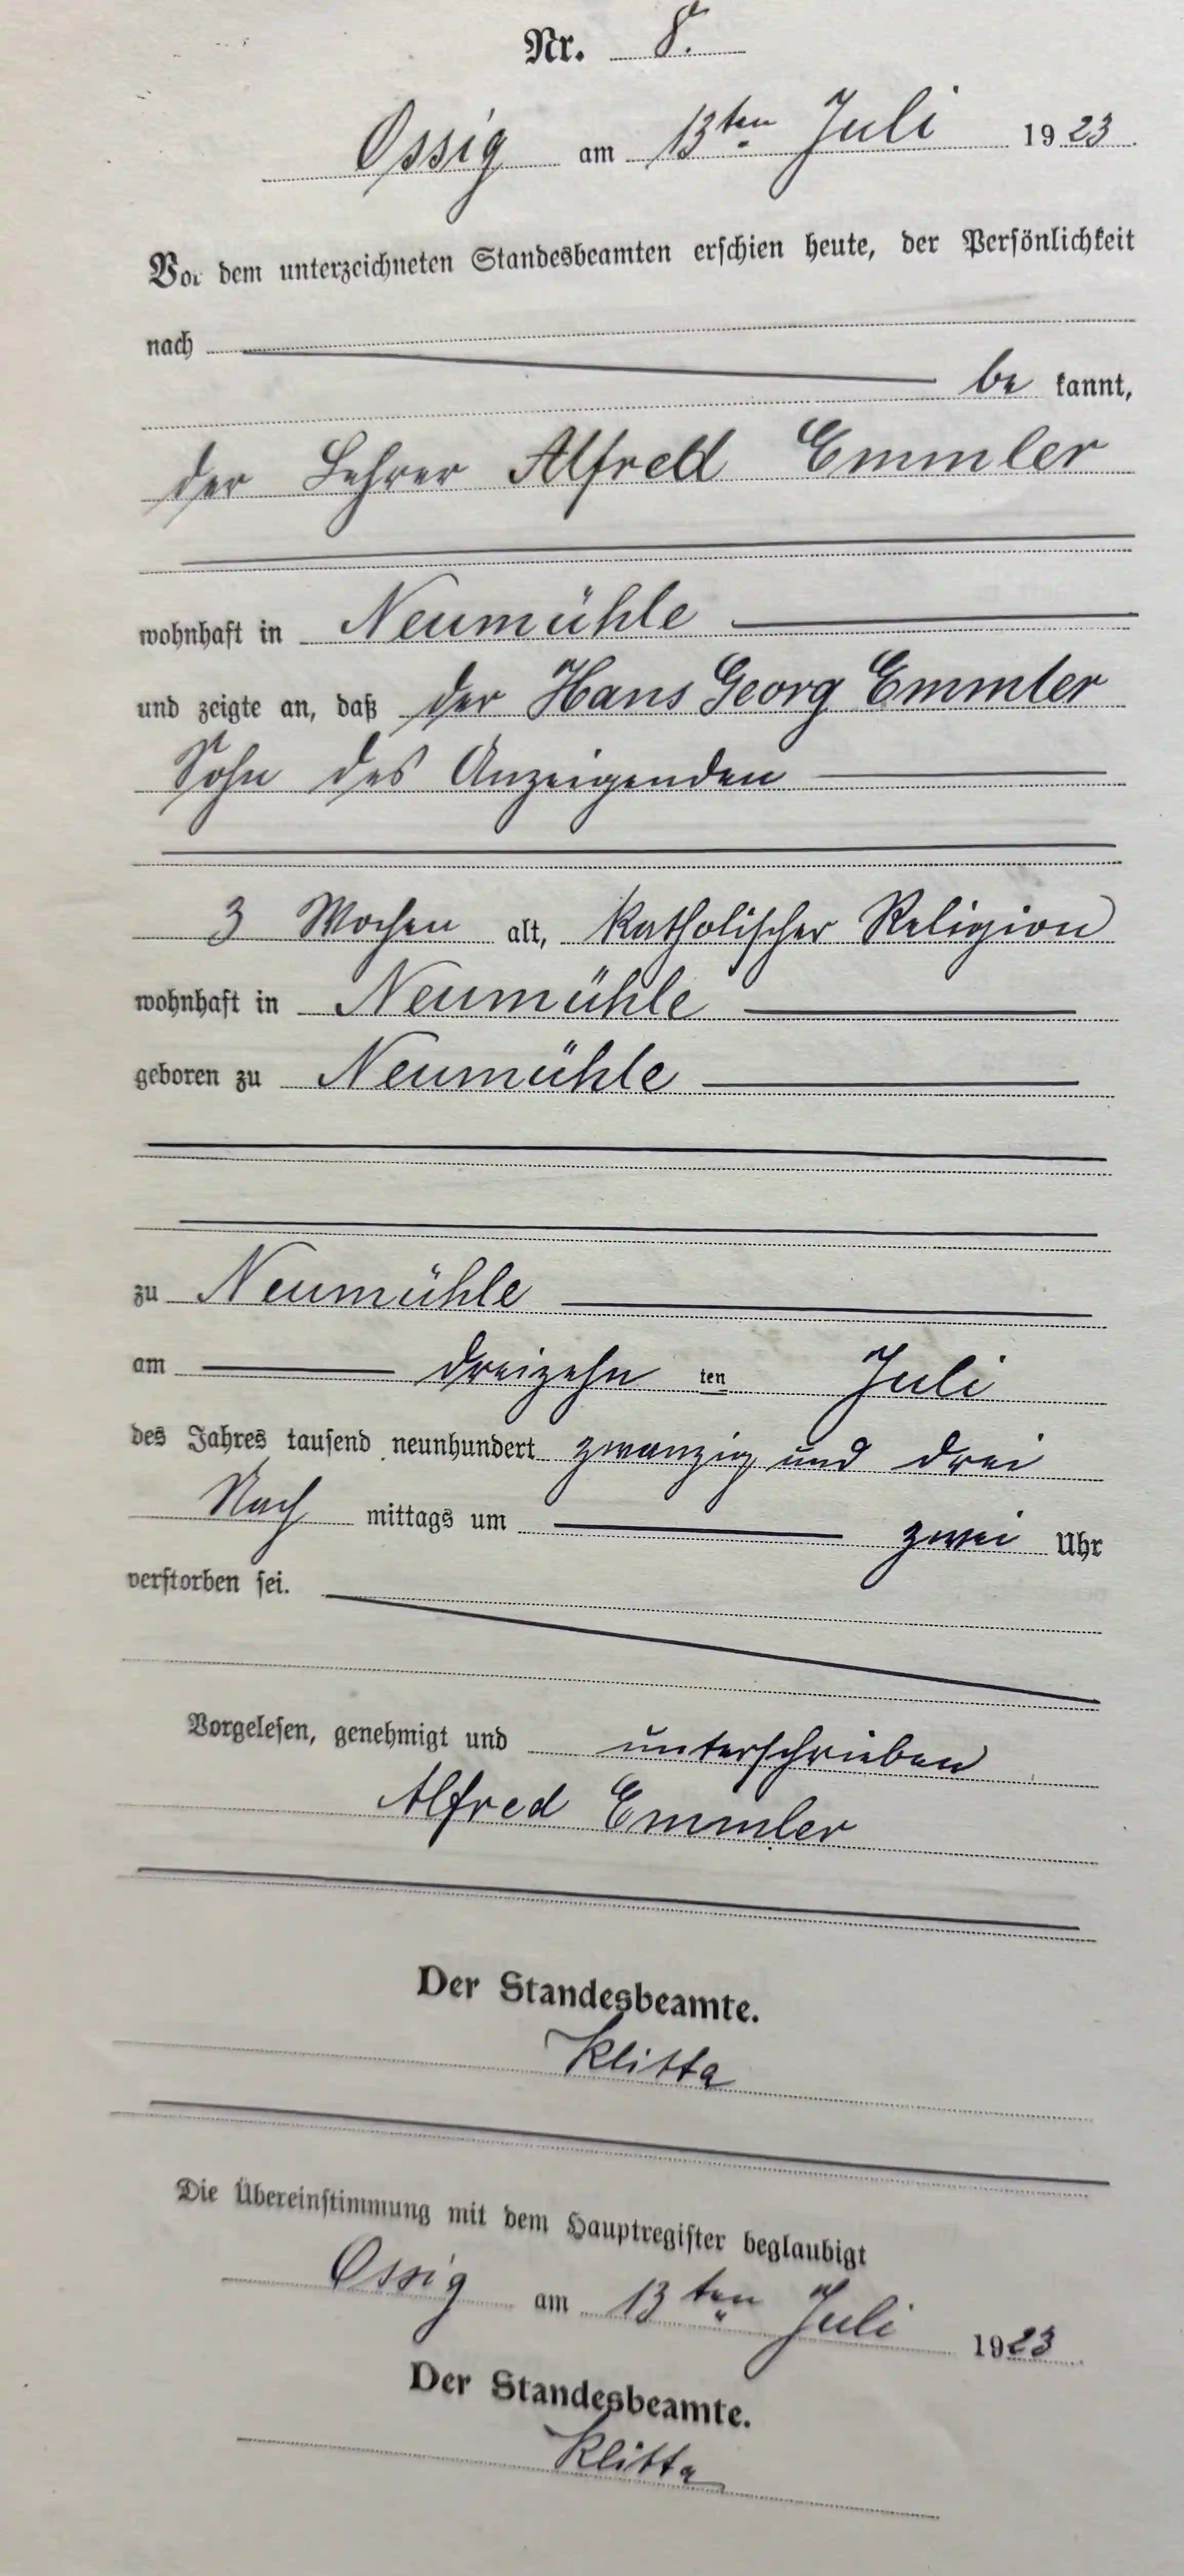 Nr. 8.
Ossig am 13ten Juli 1923.
Vor dem unterzeichneten Standesbeamten erschien heute, der Persönlichkeit
nach
be kannt,
der Lehrer Alfred Emmler
wohnhaft in Neumühle
und zeigte an, daß der Hans Georg Emmler
Sohn des Anzeigenden
3 Wochen alt, katholischer Religion
wohnhaft in Neumühle
geboren zu Neumühle
zu Neumühle
am dreizehn ten Juli
des Jahres tausend neunhundert zwanzig und drei
Nach mittags um zwei Uhr
verstorben sei.
Vorgelesen, genehmigt und unterschrieben
Alfred Emmler
Der Standesbeamte.
Klitta
Die Übereinstimmung mit dem Hauptregister beglaubigt
Ossig am 13ten Juli 1923.
Der Standesbeamte.
Klitta